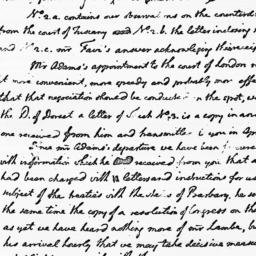 No. 2. a. contains our observations on the counterdr
from the court of Tuscany and No. 2. b. the letter inclosing
and No. 2. c. mr Favi's answer acknowleging their
Mr Adams's appointment to the court of London
it more convenient, more speedy and probably more
that that negociation should be conducted on the spot, w
the D. of Dorset a letter of which No. 3. is a copy in an
one received from him and transmitted to you in Ap
Since mr Adams's departure we have been
with information which he received from you that a
had been charged with letters and instructions for us
subject of the treaties with the states of Barbary, he se
the same time the copy of a resolution of Congress on th
as yet we have heard nothing more of mr Lambe, bu
his arrival hourly that we may take decisive measu